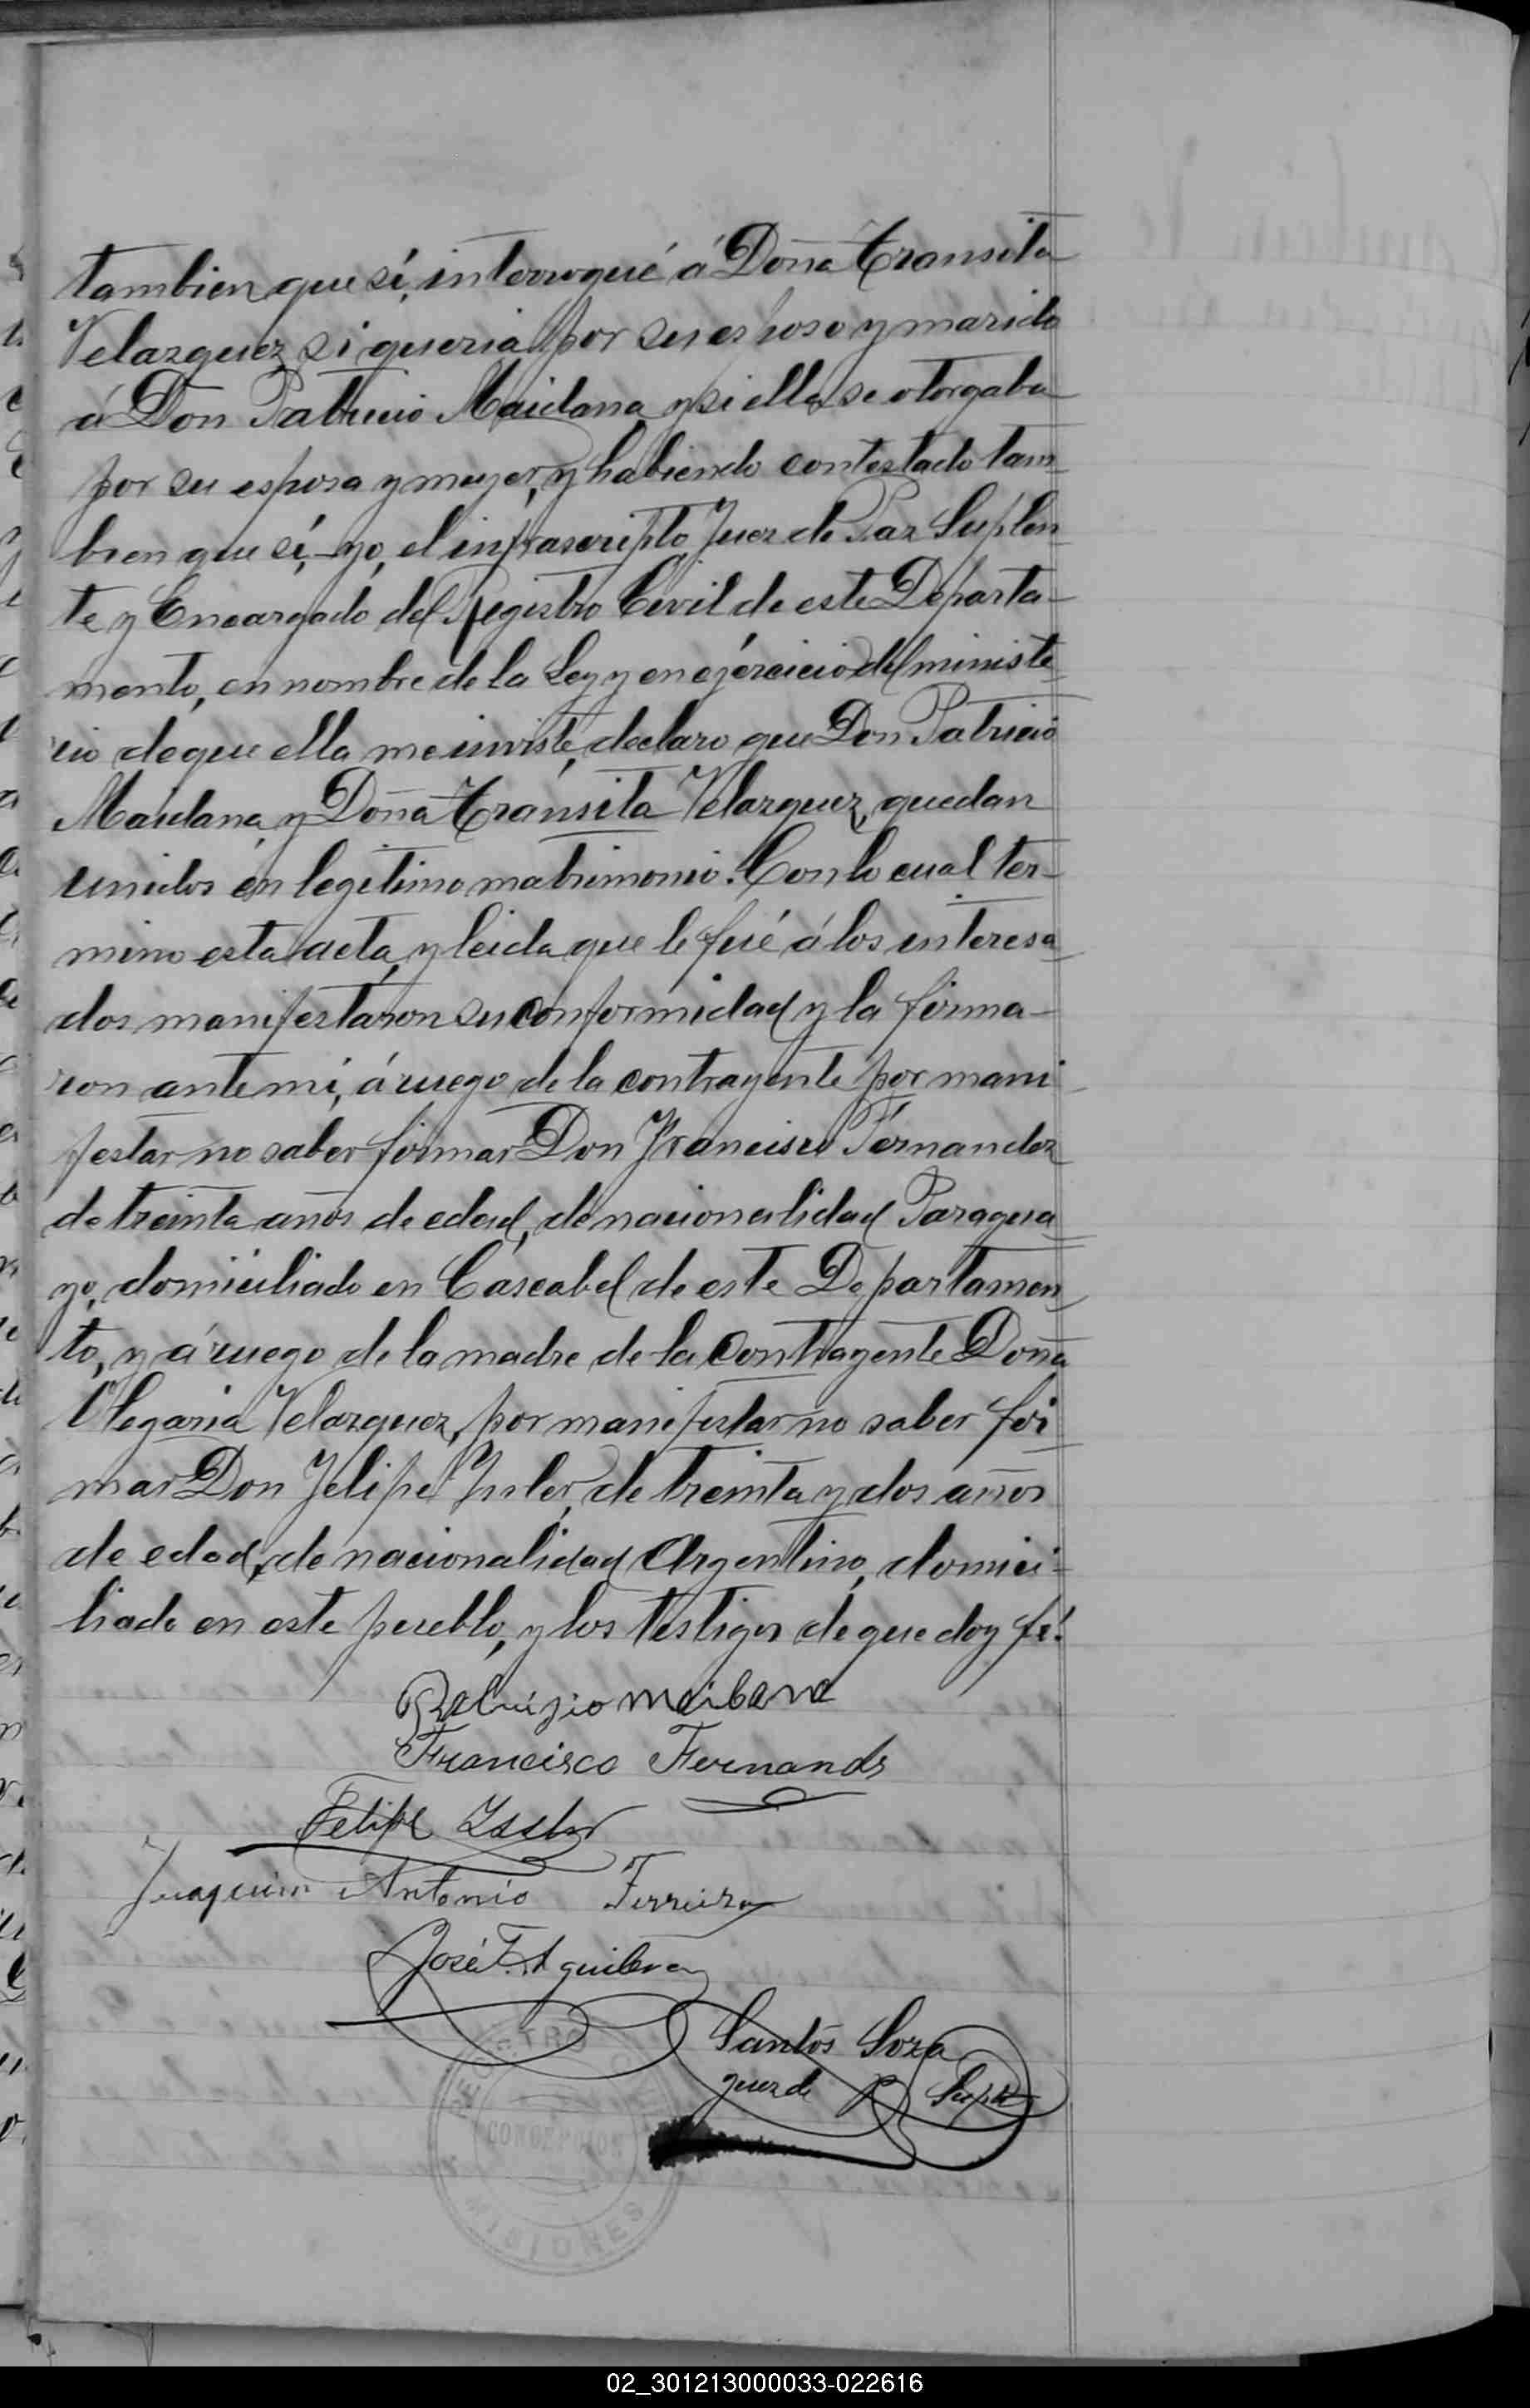 tambien que sí, interrogué á Doña Transita
Velazquez si queria por su esposo y marido
á Don Patricio Maidana y si ella se otorgaba
por su esposa y mujer, y habiendo contestado tam-
bien que sí, yo, el infrascripto Juez de Paz Suplen-
te y Encargado del Registro Civil de este Departa-
mento, en nombre de la Ley y en ejercicio del ministe-
rio de que ella me inviste, declaro que Don Patricio
Maidana y Doña Transita Velazquez, quedan
unidos en legitimo matrimonio. Con lo cual ter-
mino esta acta, y leida que le fué á los interesa-
dos manifestaron su conformidad y la firma-
ron ante mi, á ruego de la contrayente por mani-
festar no saber firmar Don Francisco Fernandez
de treinta años de edad, de nacionalidad Paragua-
yo, domiciliado en Cascabel de este Departamen-
to, y á ruego de la madre de la contrayente Doña
Olegaria Velazquez, por manifestar no saber fir-
mar Don Felipe Isler, de treinta y dos años
de edad, de nacionalidad Argentino, domici-
liado en este pueblo, y los testigos de que doy fé.
Patrizio maidana
Francisco Fernands
Felipe Issler
Juaquim Antonio Ferreira
José F. Aguilera
Santos Soza
Juez de P. Suplte
REGISTRO
CONCEPCION
MISIONES
02_301213000033-022616